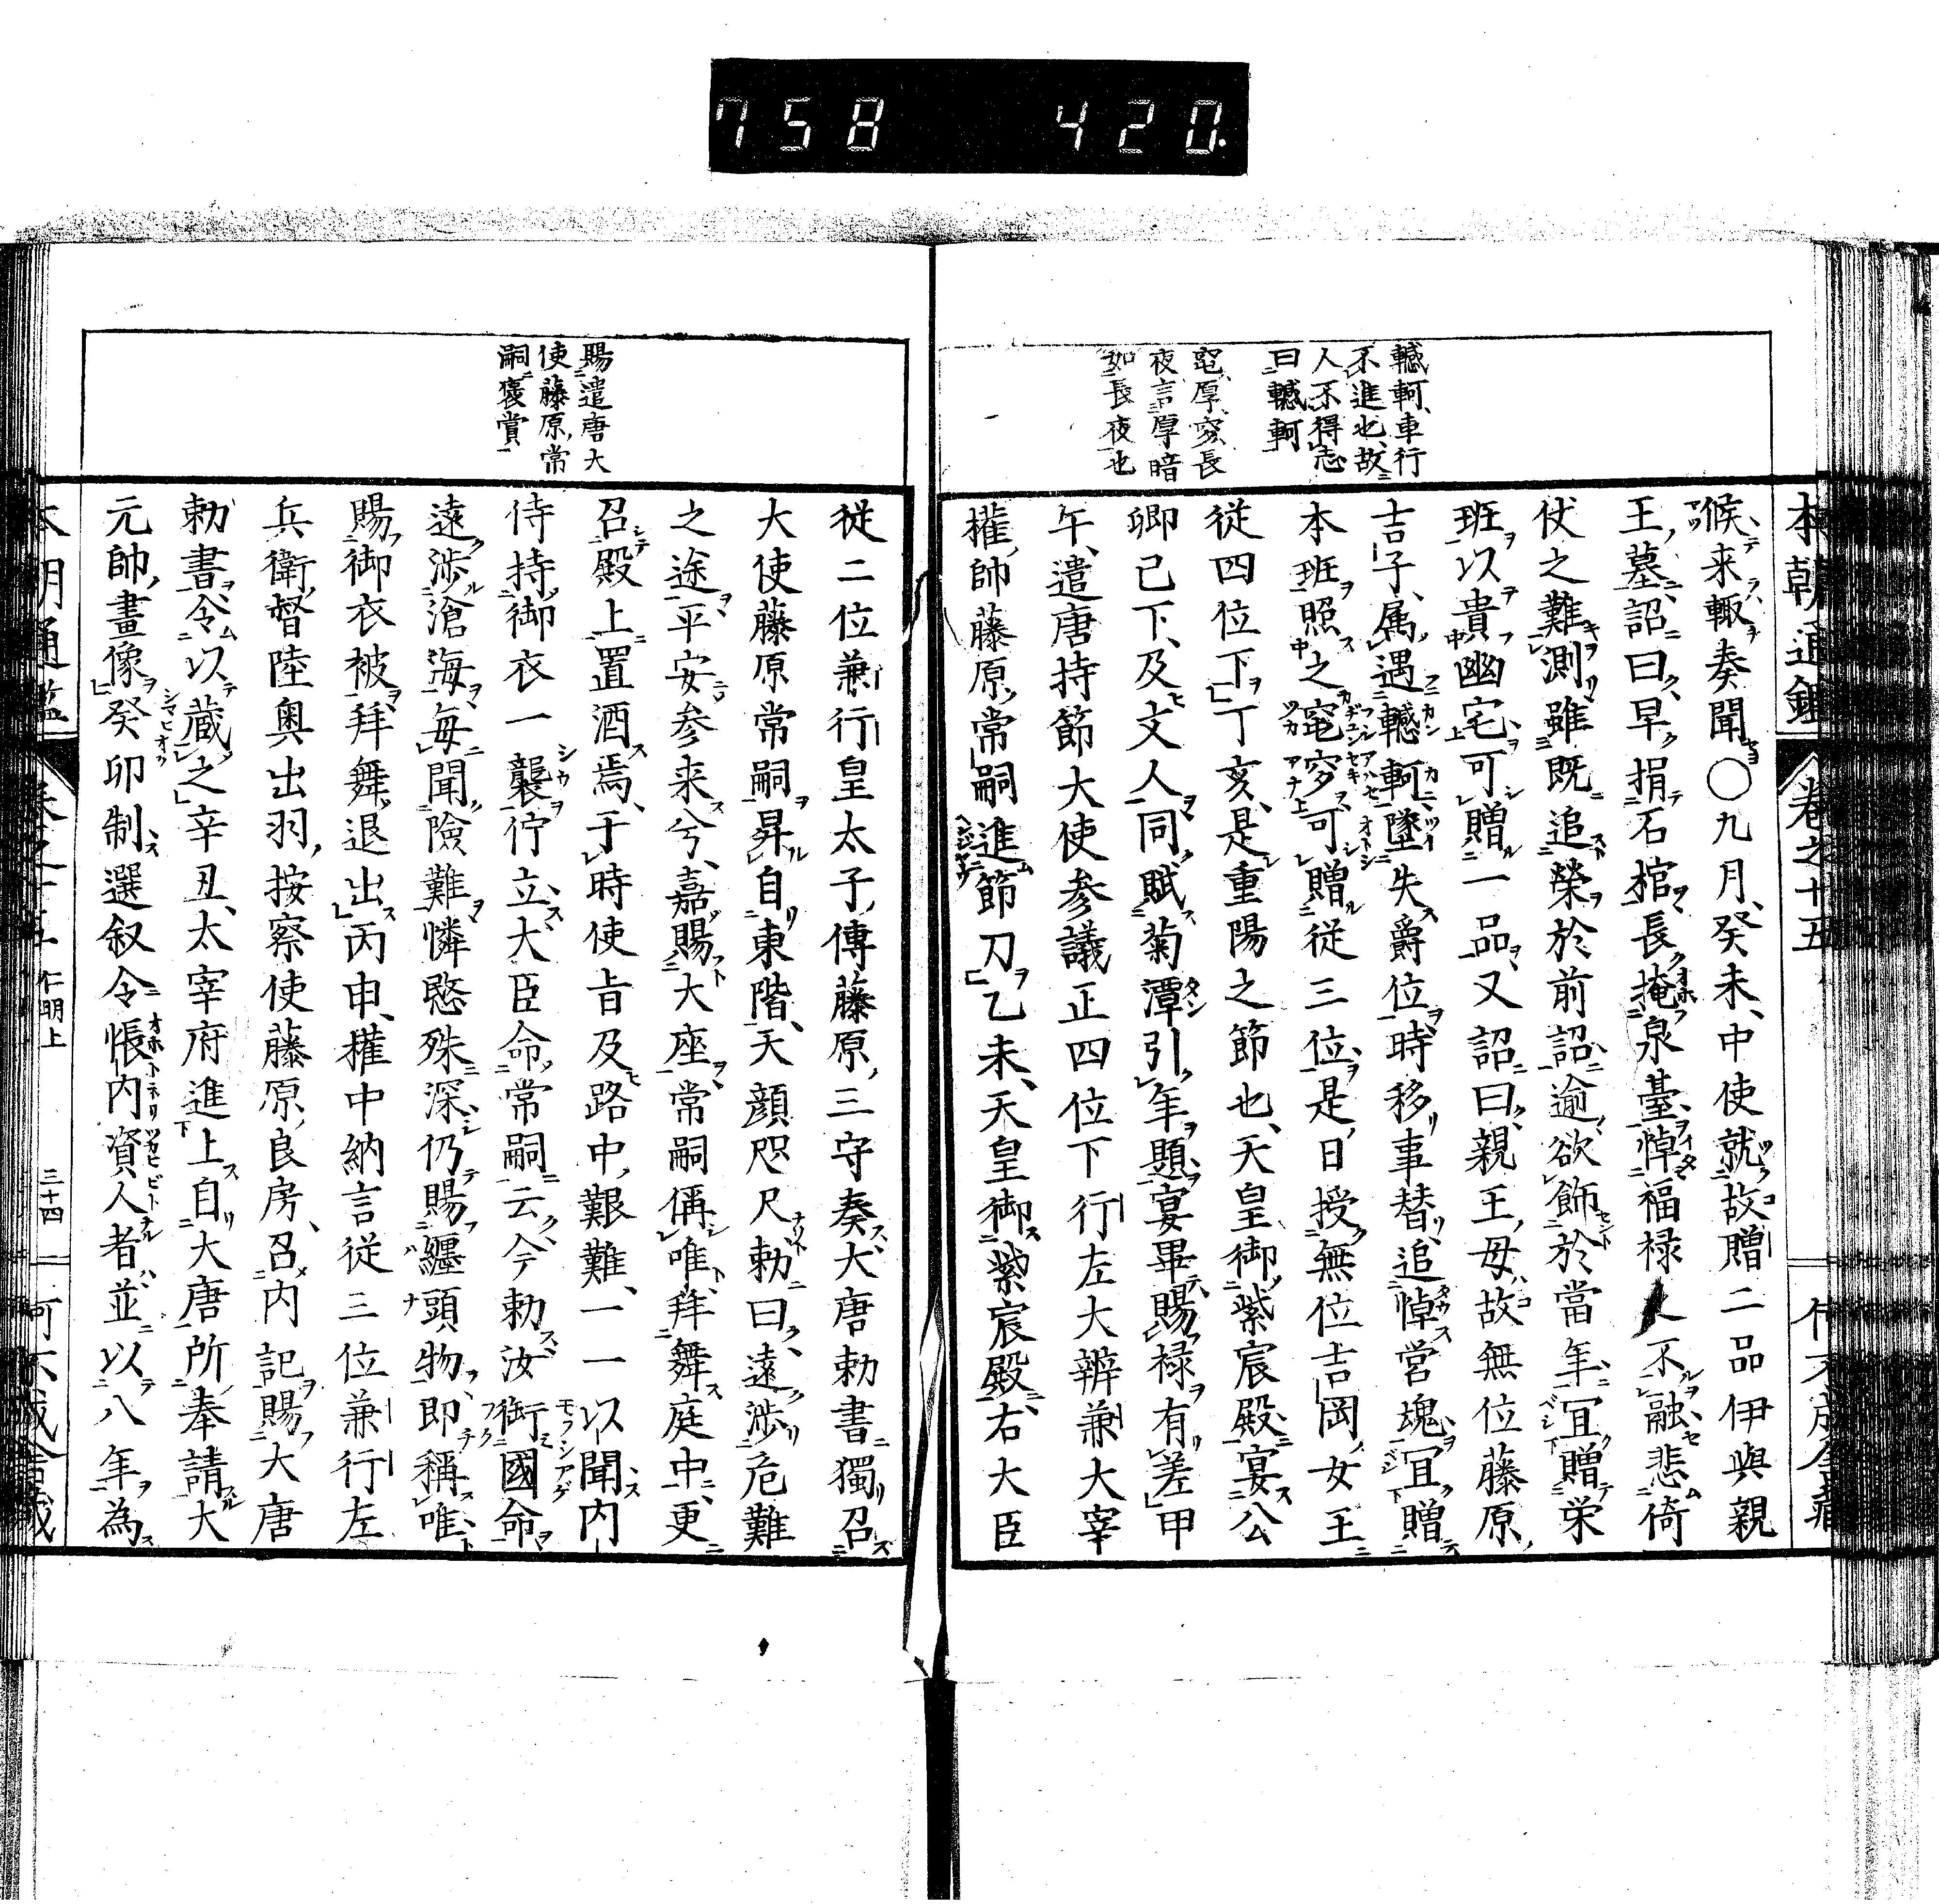 758 420.
本朝通鑑 卷之十五
轗軻、車行
不進也、故
人不得志
曰轗軻
窀厚、穸長
夜言厚暗
如長夜也
候来輙奏聞〇九月、癸未、中使就故贈二品伊與親
王墓詔曰、早捐石棺長掩泉臺、悼福禄之不融悲倚
伏之難測雖既追榮於前詔逾欲飾於當年、宜贈栄
班以貴幽宅、可贈一品、又詔曰、親王母故無位藤原
吉子、属遇轗軻墜失爵位、時移事替、追悼営魂、宜贈
本班照之窀穸、可贈従三位、是日授無位吉岡女王
従四位下丁亥、是重陽之節也、天皇御紫宸殿、宴公
卿已下、及文人同賦菊潭引年題、宴畢賜禄有差甲
午、遣唐持節大使参議正四位下行左大辨兼大宰
權帥藤原常嗣進節刀乙未、天皇御紫宸殿、右大臣
賜遣唐大
使藤原常
嗣褒賞
従二位兼行皇太子傳藤原三守奏大唐勅書獨召
大使藤原常嗣昇自東階、天顔咫尺勅曰、遠渉危難
之途、平安参来兮、嘉賜大座、常嗣偁唯、拜舞庭中、更
召殿上置酒焉、于時使旨及路中艱難、一一以聞内
侍持御衣一襲佇立、大臣命常嗣云、今勅汝銜國命
遠渉滄海毎聞險難憐愍殊深、仍賜纒頭物、即称唯、
賜御衣被拜舞退出丙申、權中納言従三位兼行左
兵衛督陸奥出羽按察使藤原良房、召内記賜大唐
勅書、令以蔵之辛丑、太宰府進上自大唐所奉請大
元帥畫像癸卯制選叙令帳内資人者並以八年為
本朝通鑑 卷之十五 仁明上 三十四